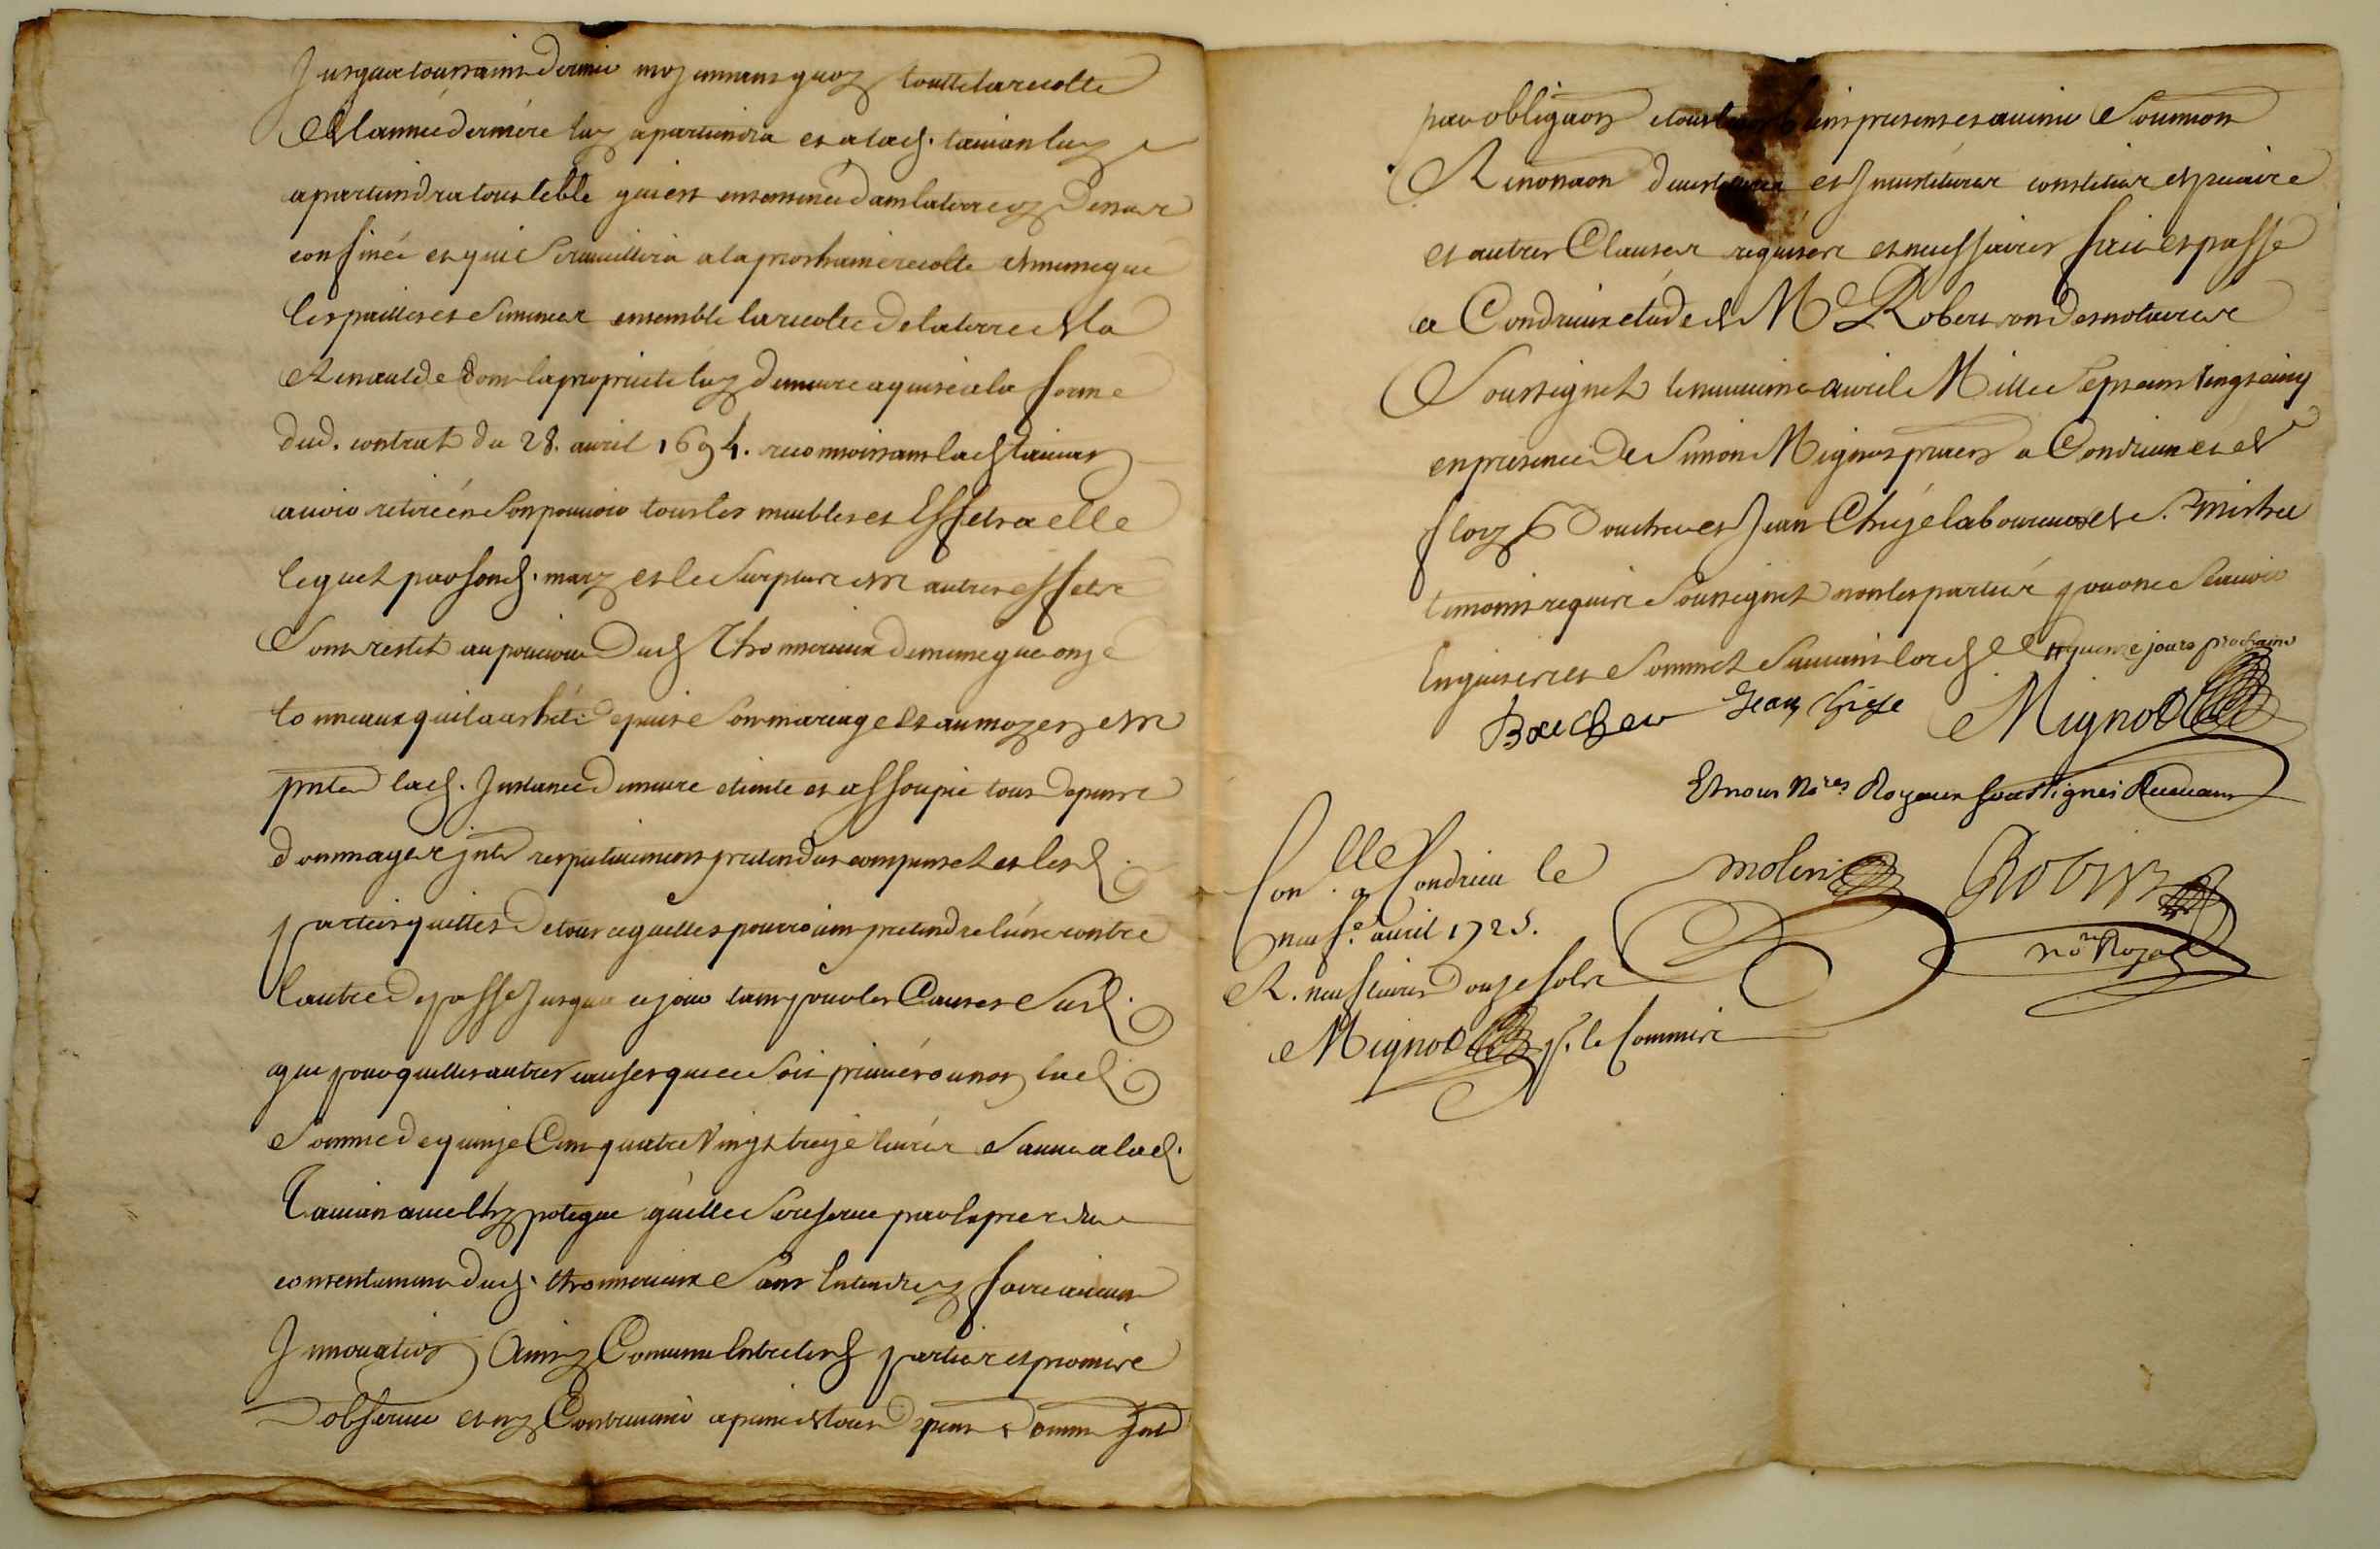 Jusqua toussaint dernier moyennant quoy toutte la recolte
de lannée derniére luy apartiendra et a lad. tavian luy
apartiendra tout le blé qui est ensemencé dans la terre cy dessus
confinée et qui se cueillira a la prochaine recolte de meme que
les pailles et sumences ensemble la recolte de la terre de la
Renaude dont la proprieté luy demeure aquise a la forme
dud. contrat du 28. avril 1694. reconnoissant lad tavian
avoir retiré en son pouvoir tous les meubles et Effets a elle
leguet par sond. mary et le surplus des autres effets
sont restet au pouvoir dud Thomerieux de meme que onze
tonneaux quil a achété depuis son mariage et au moyen des
pntes lad. Instance demeure eteinte et assoupie tous depens
dommages jnts respectivement pretendus compenset et lesd.
parties quittes de tout ce quelles pouvoient pretendre lune contre
lautre du passé jusqua ce jour tant pour les Causes susd.
que pour quelles autres causes que ce soit privé ou non lad.
somme de quinze Cent quatre Vingt treize livres sauve a lad.
Tavian avec lhypoteque quelle se reserve par lexpres du
consentement dud. thomerieux sans Entendre y faire aucune
Innovation Ainsy Convenu Entre lesd parties et promis
dobserver et ny Contrevenir a peine de tous depens domm Jnts
par obligaon et tous biens presents et avenir soumion
Renonaon et constitués et precaire
et autres Clauses requises et necessaires fait et passé
a Condrieux etude de Me Robert un des notaires
Soussignet le neuvieme avril Mille Sept cent Vingt cinq
en presence de Simon Mignot pratn a Condrieux et de
floy Boucher et Jean Chiéze laboureur de St. Michel
temoins requis Soussignet non les parties pour ne scavoir
Enquises et sommet suivant lord d quinze jours prochains
Boucher Jean Chieze Mignot
Et nous Nores Royaux soussignés Recevans
Conllé a Condrieu le
neufe. avril 1725.
R. neuf livres douze sols
Mignot pr. le Commis
molin Robert
nore Royal